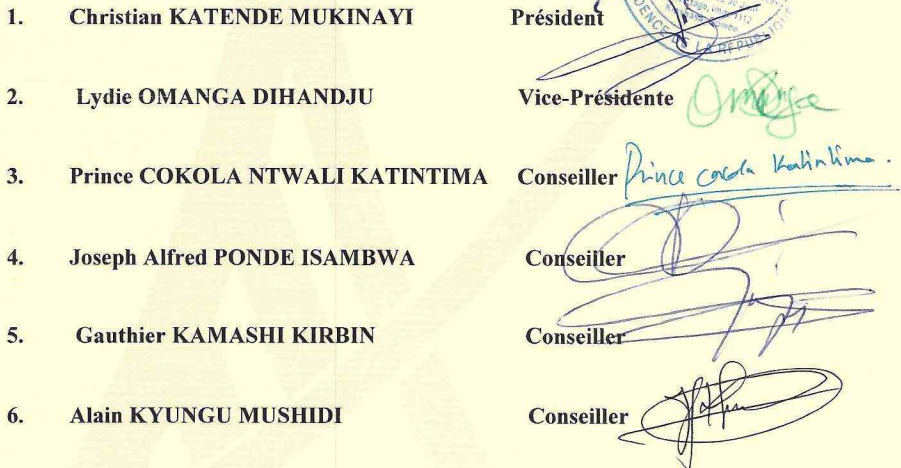 1. Christian KATENDE MUKINAYI Président
DE LA REPU
2. Lydie OMANGA DIHANDJU Vice-Présidente
3. Prince COKOLA NTWALI KATINTIMA Conseiller Prince cocola Katintima.
4. Joseph Alfred PONDE ISAMBWA Conseiller
5. Gauthier KAMASHI KIRBIN Conseiller
6. Alain KYUNGU MUSHIDI Conseiller